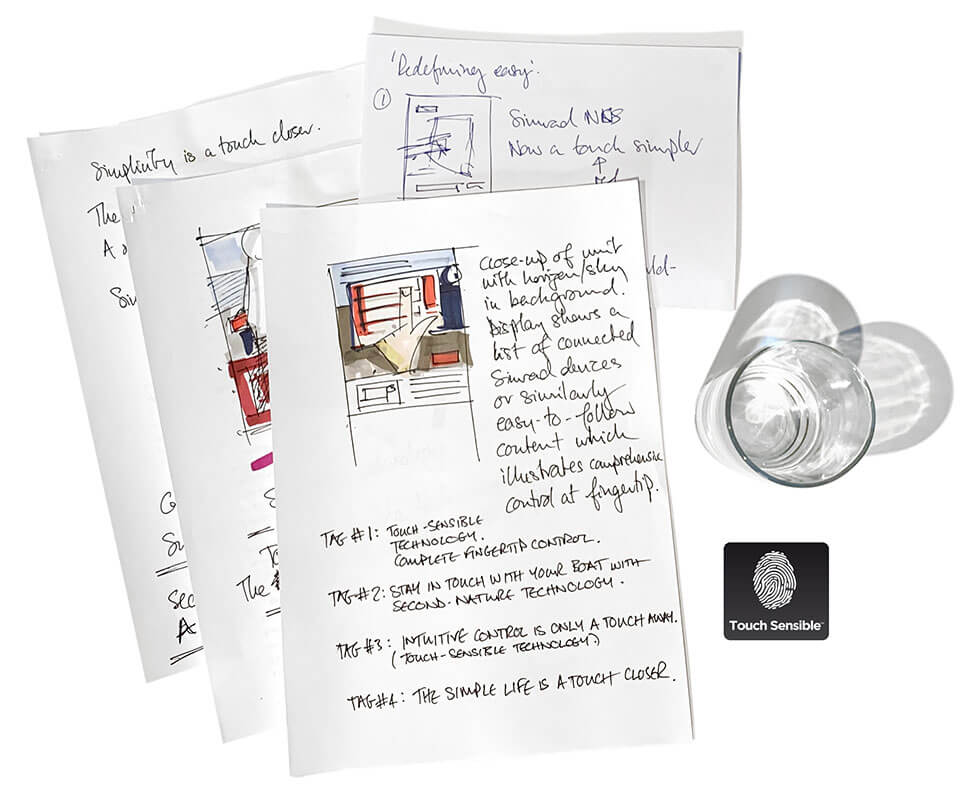 'Redefining easy'.
①
Simrad NSS
Now a touch simpler
Simplicity is a touch closer.
The
A
Close-up of unit
with horizon/sky
in background.
Display shows a
list of connected
Simrad devices
or similarly
easy-to-follow
content which
illustrates comprehensive
control at fingertip.
TAG #1: TOUCH-SENSIBLE
TECHNOLOGY.
COMPLETE FINGERTIP CONTROL.
TAG #2: STAY IN TOUCH WITH YOUR BOAT WITH
SECOND-NATURE TECHNOLOGY.
TAG #3: INTUITIVE CONTROL IS ONLY A TOUCH AWAY.
(TOUCH-SENSIBLE TECHNOLOGY?)
TAG #4: THE SIMPLE LIFE IS A TOUCH CLOSER.
The
A
Touch Sensible™